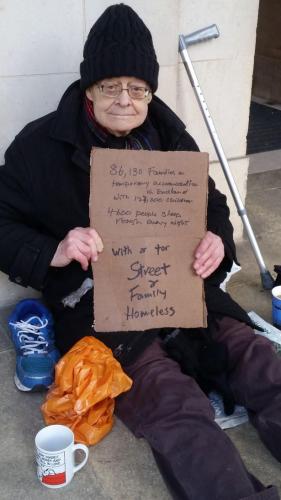 86,130 Families in
temporary accommodation
in England
with 127,000 children
4600 people sleep
rough every night
With or for
Street
or
Family
Homeless